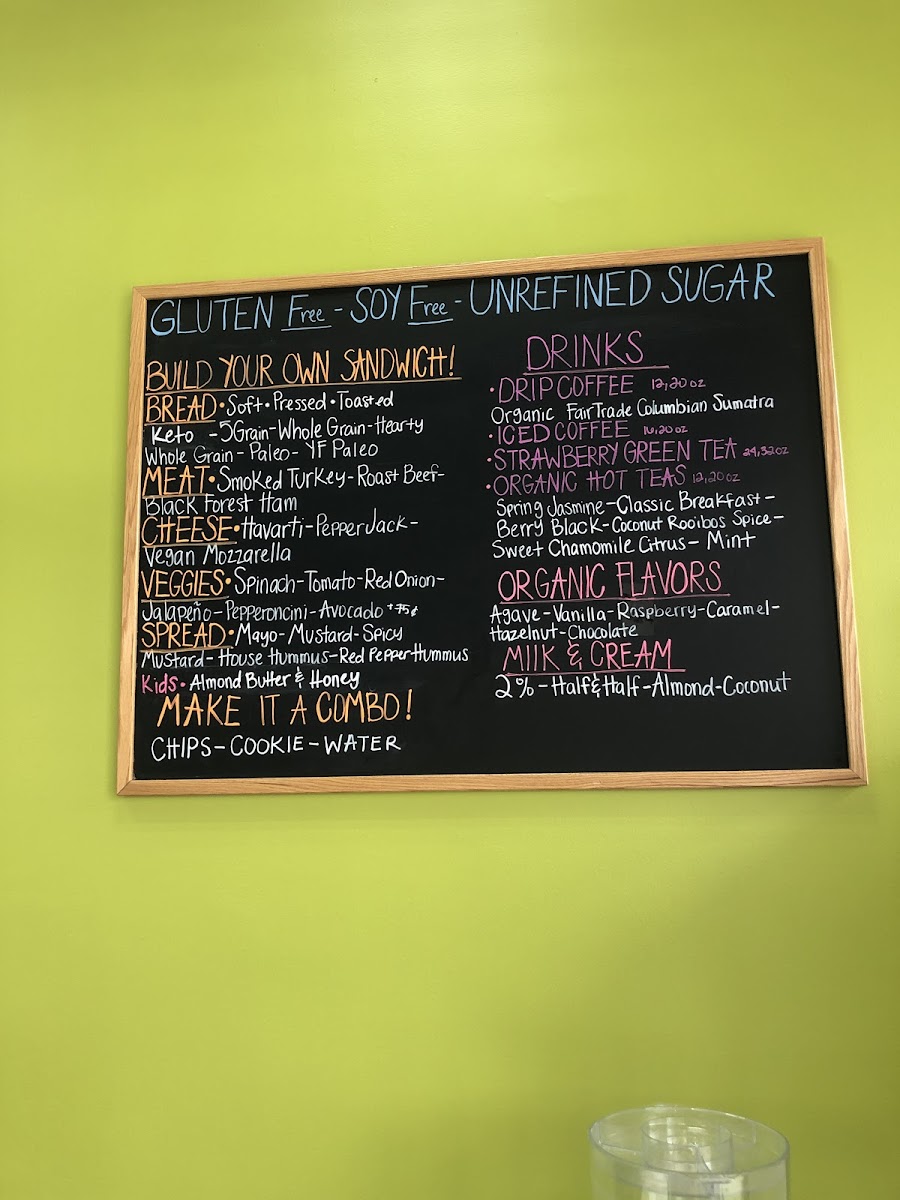 GLUTEN Free - SOY Free - UNREFINED SUGAR
BUILD YOUR OWN SANDWICH!
BREAD • Soft • Pressed • Toasted
Keto - 5Grain - Whole Grain - Hearty
Whole Grain - Paleo - YF Paleo
MEAT • Smoked Turkey - Roast Beef -
Black Forest Ham
CHEESE • Havarti - Pepper Jack -
Vegan Mozzarella
VEGGIES • Spinach - Tomato - Red Onion -
Jalapeño - Pepperoncini - Avocado +75¢
SPREAD • Mayo - Mustard - Spicy
Mustard - House Hummus - Red Pepper Hummus
Kids • Almond Butter & Honey
MAKE IT A COMBO!
CHIPS - COOKIE - WATER
DRINKS
• DRIP COFFEE 12, 20 oz
Organic Fair Trade Columbian Sumatra
• ICED COFFEE 16, 20 oz
• STRAWBERRY GREEN TEA 24, 32 oz
• ORGANIC HOT TEAS 12, 20 oz
Spring Jasmine - Classic Breakfast -
Berry Black - Coconut Rooibos Spice -
Sweet Chamomile Citrus - Mint
ORGANIC FLAVORS
Agave - Vanilla - Raspberry - Caramel -
Hazelnut - Chocolate
MILK & CREAM
2% - Half & Half - Almond - Coconut